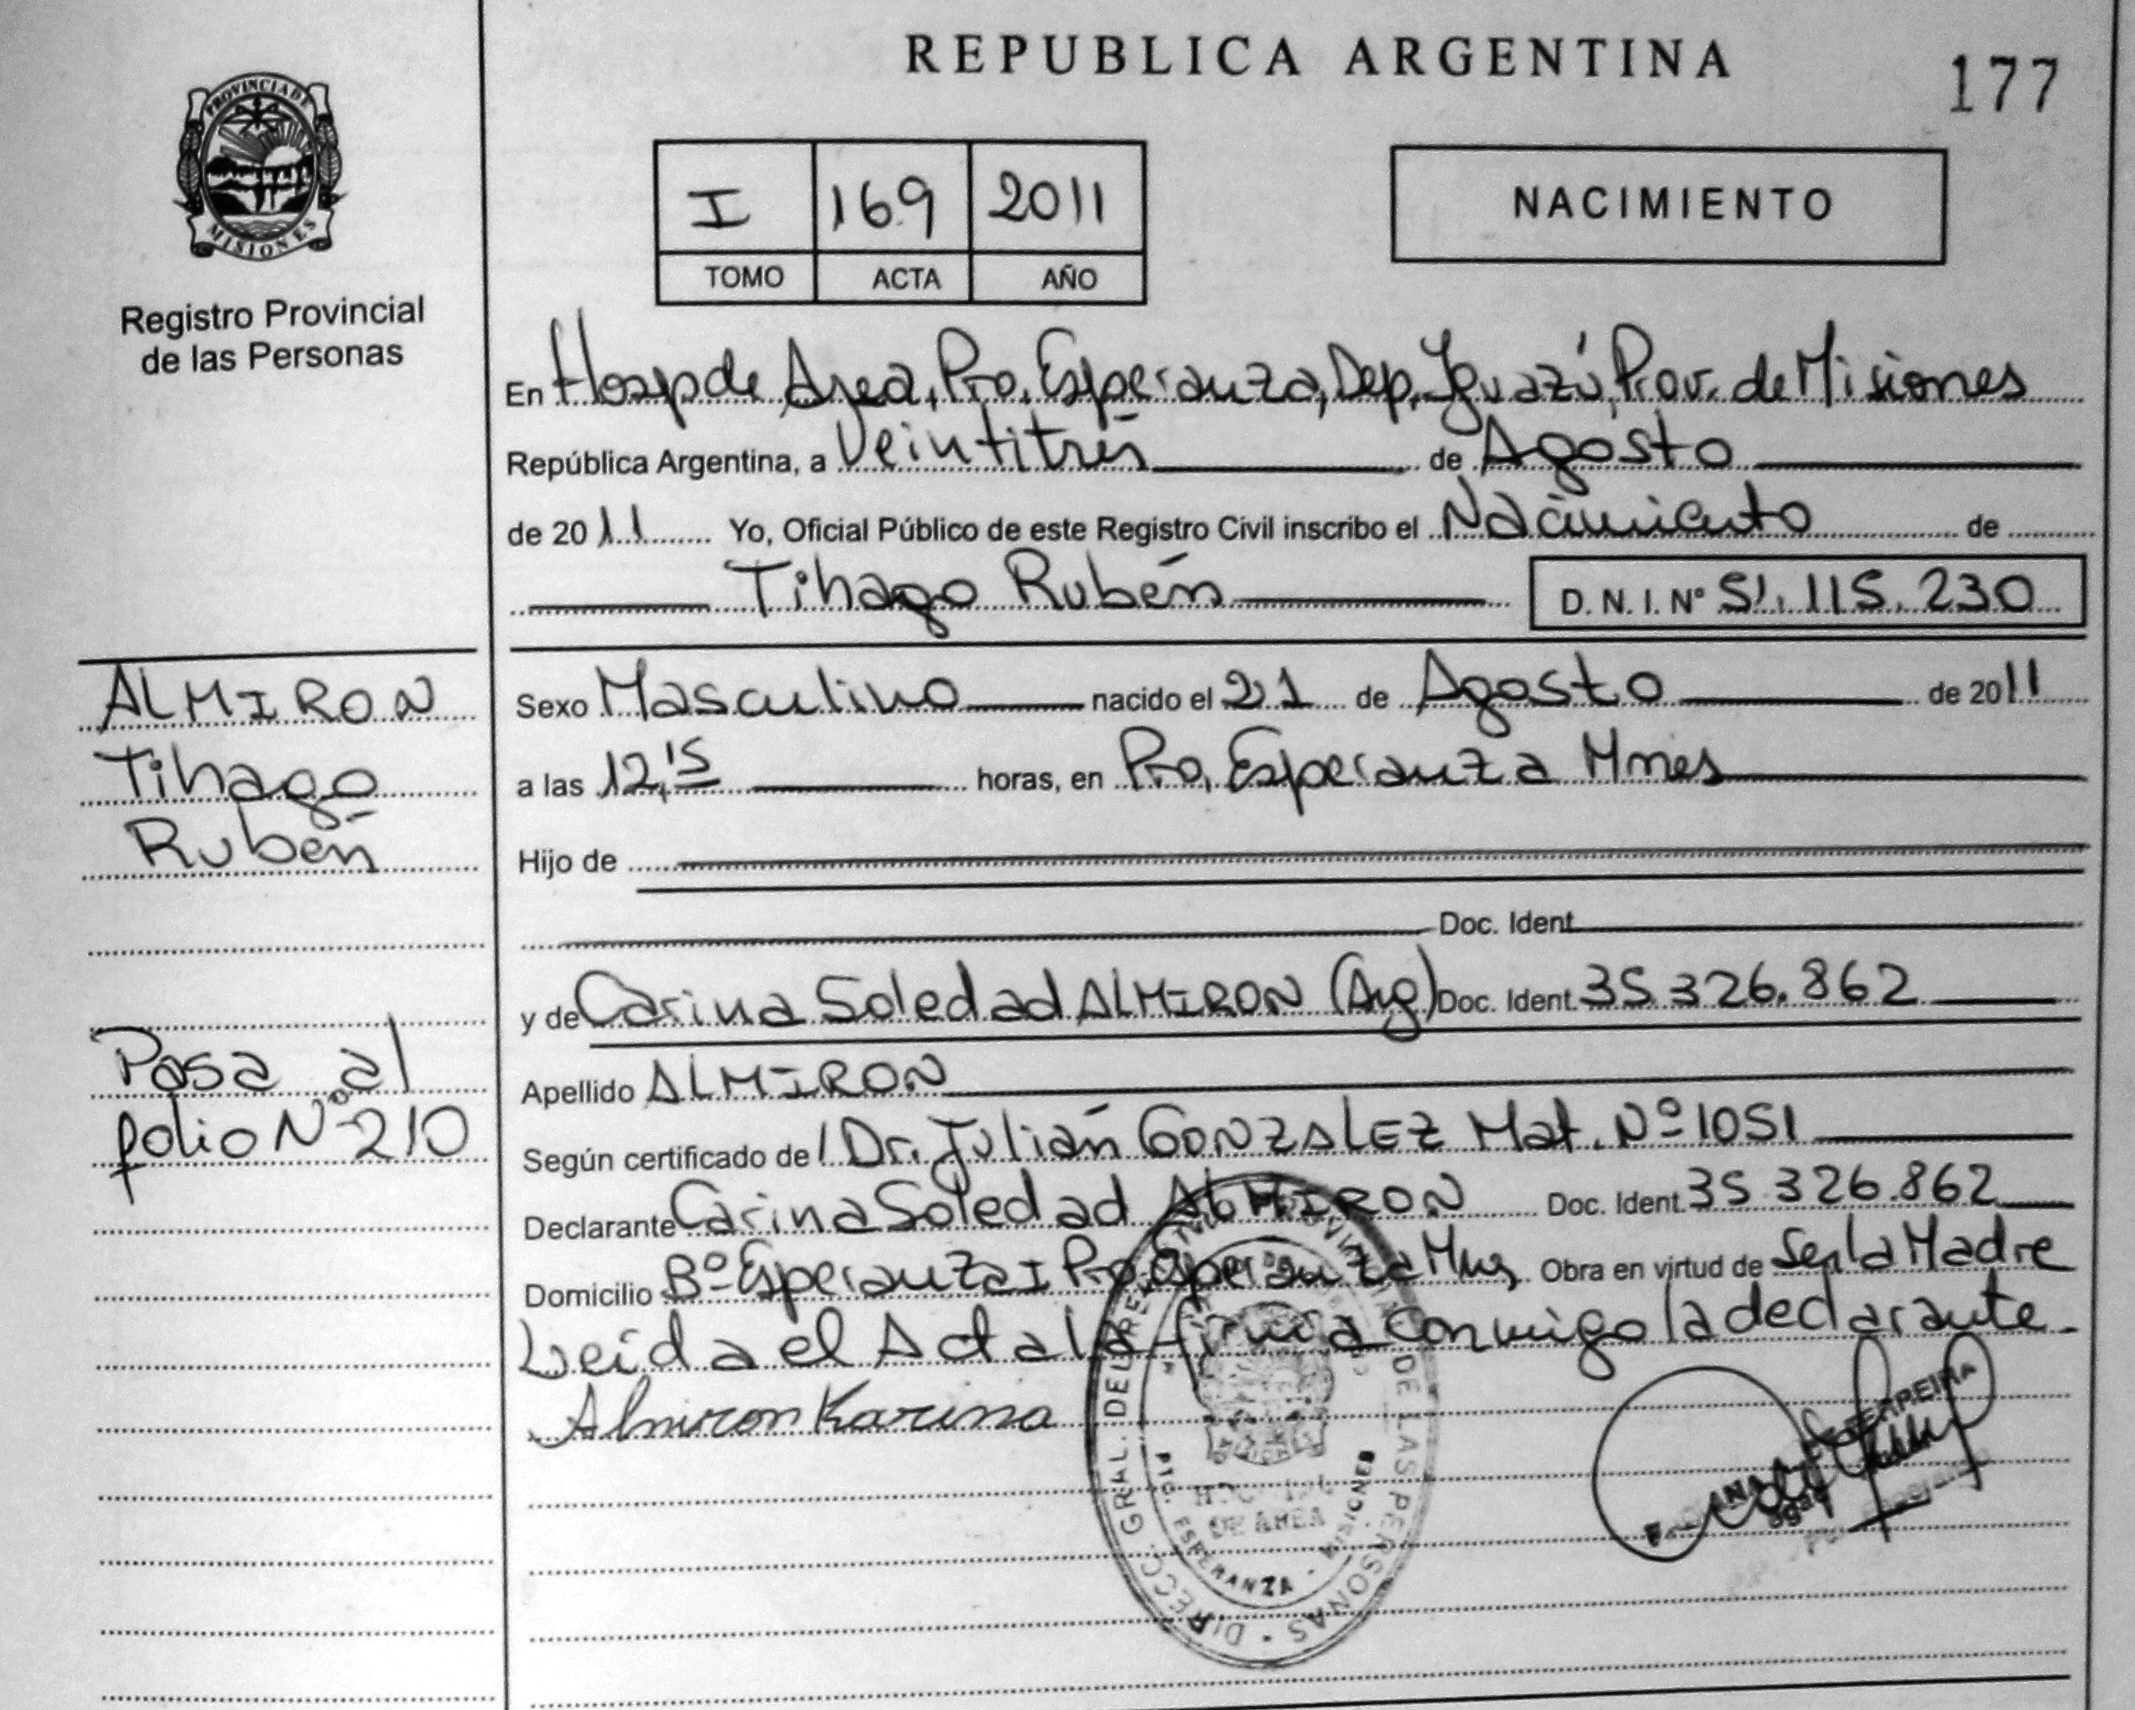 REPUBLICA ARGENTINA
177
PROVINCIA DE
MISIONES
Registro Provincial
de las Personas
I 169 2011
TOMO ACTA AÑO
NACIMIENTO
En Hosp de Area, Pto. Esperanza, Dep. Iguazú, Prov. de Misiones
República Argentina, a Veintitrés de Agosto
de 2011 Yo, Oficial Público de este Registro Civil inscribo el Nacimiento de
Tihago Rubén D.N.I. Nº 51.115.230
ALMIRON
Tihago
Rubén
Pasa al
folio Nº 210
Sexo Masculino nacido el 21 de Agosto de 2011
a las 12,15 horas, en Pto. Esperanza Mnes
Hijo de
Doc. Ident.
y de Carina Soledad ALMIRON (Arg) Doc. Ident. 35.326.862
Apellido ALMIRON
Según certificado de Dr. Julián GONZALEZ Mat. Nº 1051
Declarante Carina Soledad ALMIRON Doc. Ident. 35.326.862
Domicilio Bº Esperanza I Pto. Esperanza Mnes Obra en virtud de Ser la Madre
Leida el Acta la firma conmigo la declarante.
Almiron Karina
DIRECC. GRAL. DEL REG. PROVINCIAL DE LAS PERSONAS
DE AREA
PTO. ESPERANZA - MISIONES